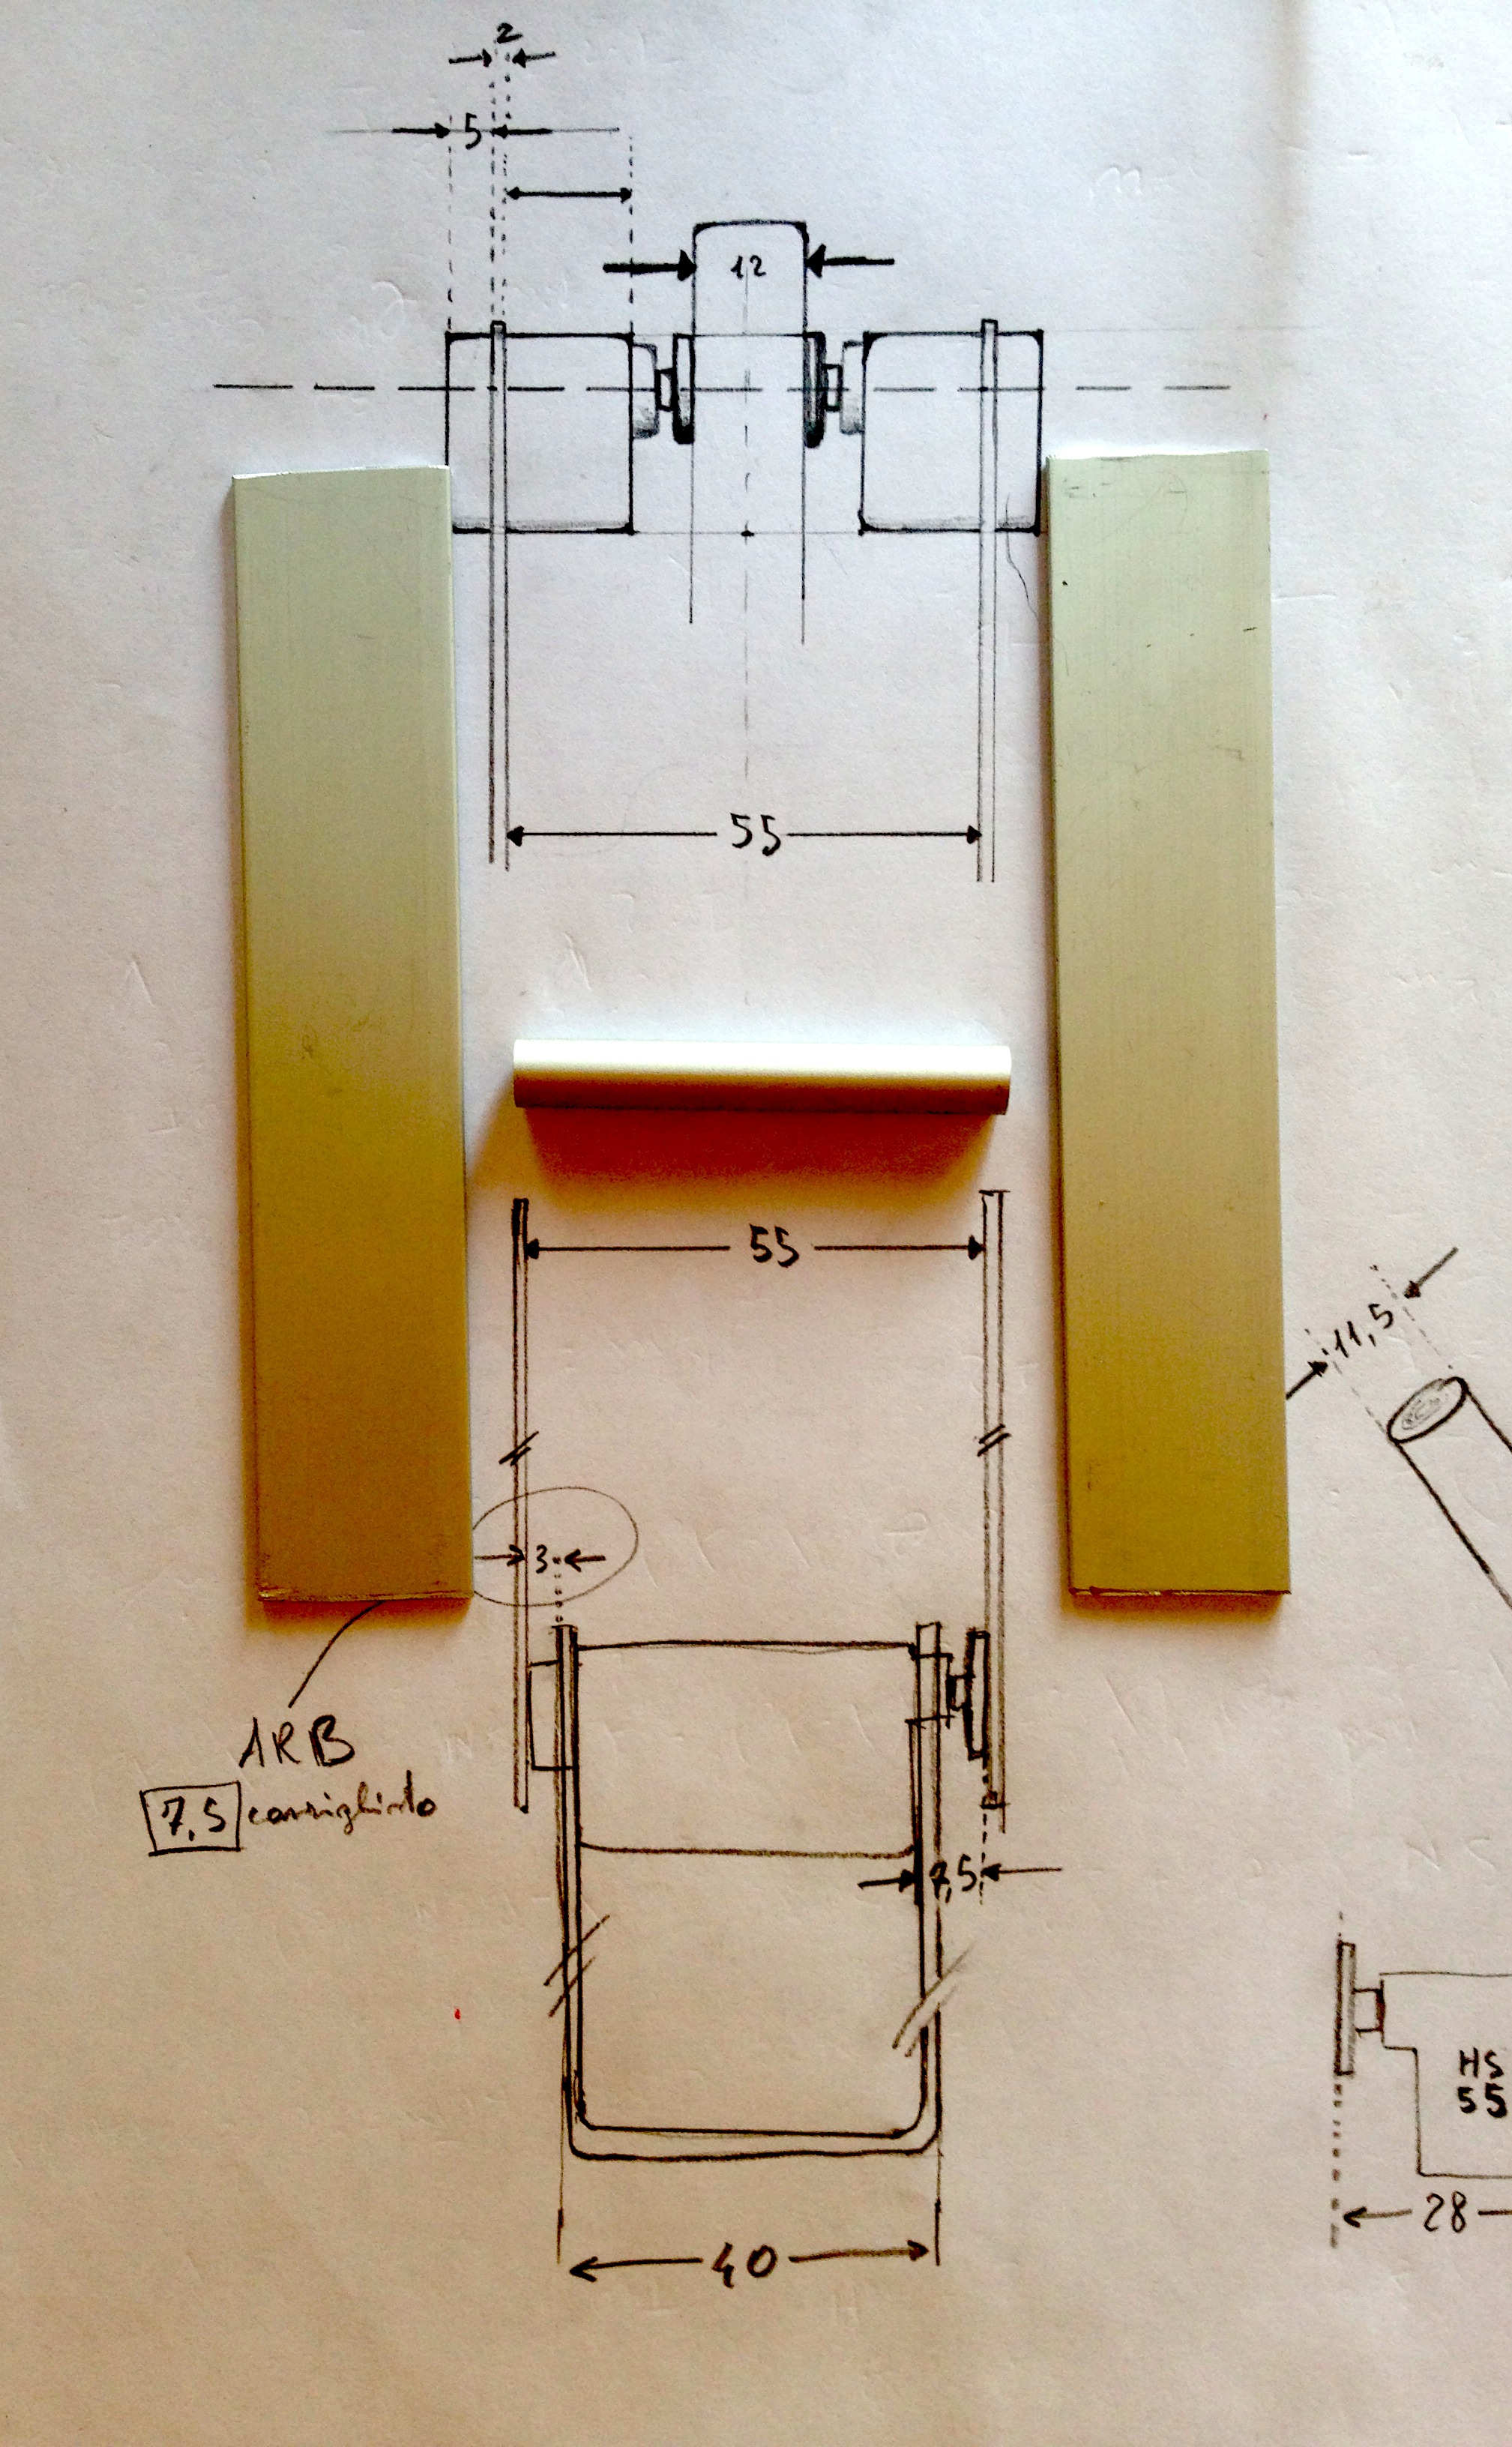 2
5
12
55
55
11,5
3
ARB
7,5 consigliato
7,5
HS
55
28
40